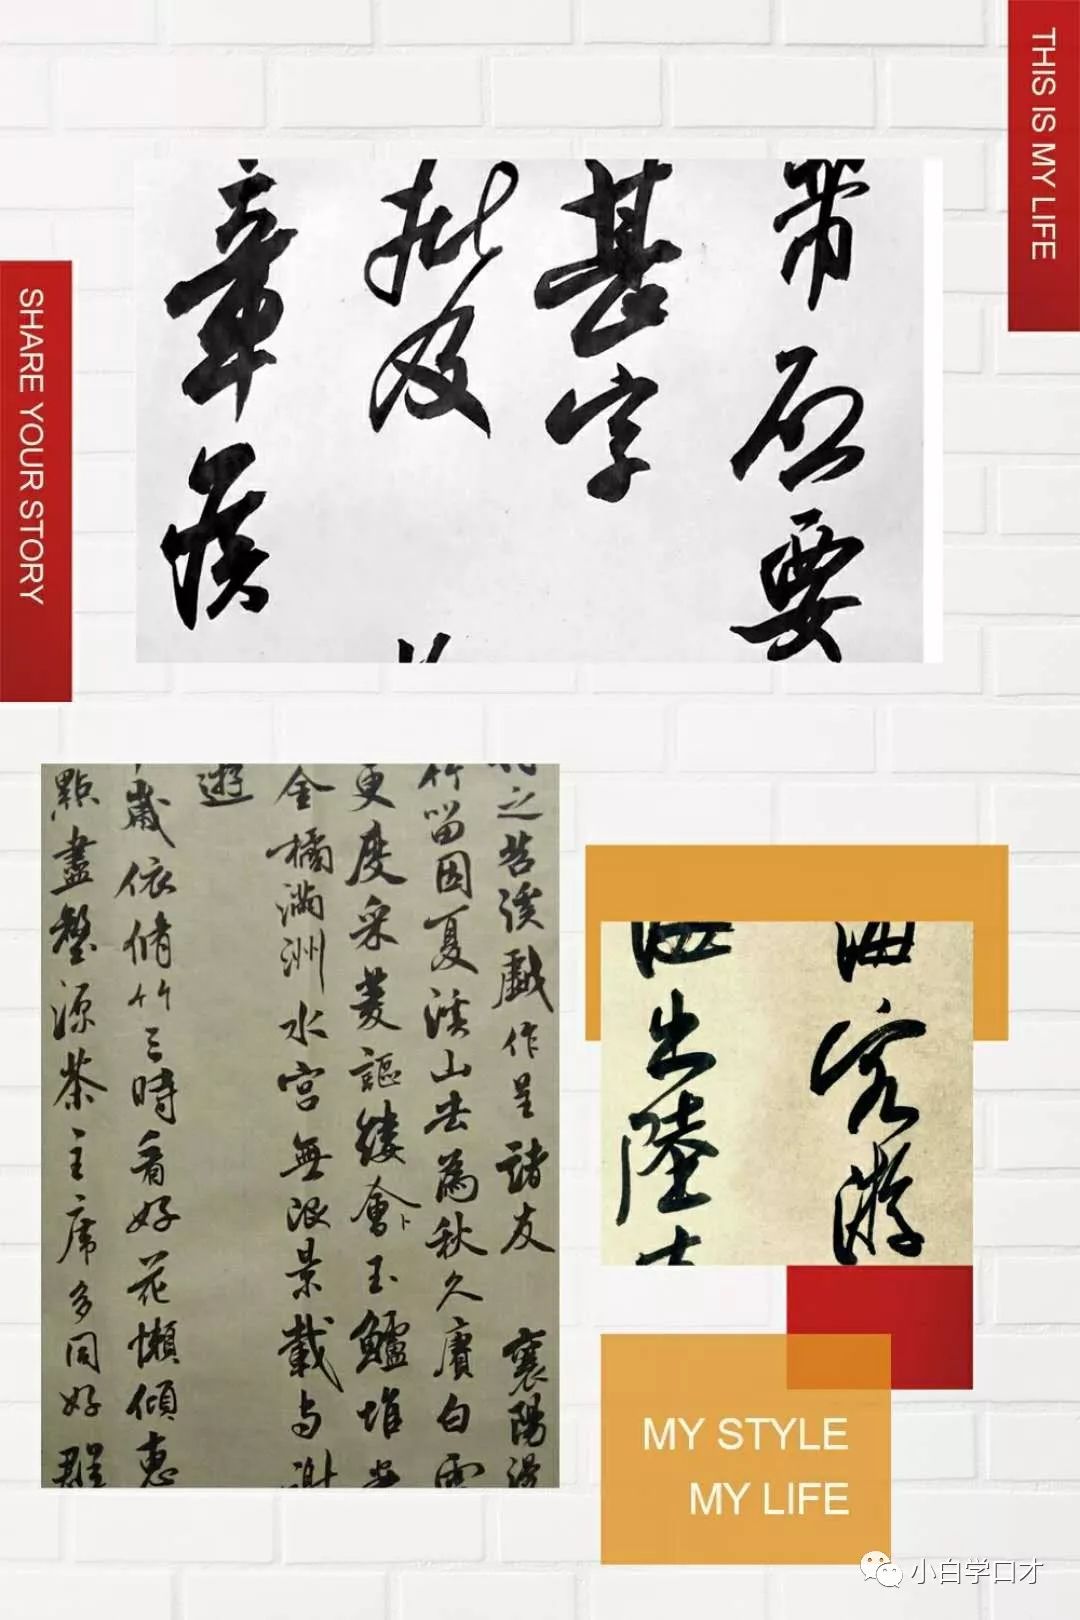 THIS IS MY LIFE
SHARE YOUR STORY
要
甚字
批及
章侯
之苕溪戲作呈諸友 襄陽漫
竹留因夏溪山去為秋久賡白雪
更度采菱謳縷會玉鱸堆案
金橘滿洲水宮無限景載与謝
遊
歲依脩竹三時看好花懶傾惠
點盡壑源茶主席多同好群
海客游
出陸
MY STYLE
MY LIFE
小白学口才